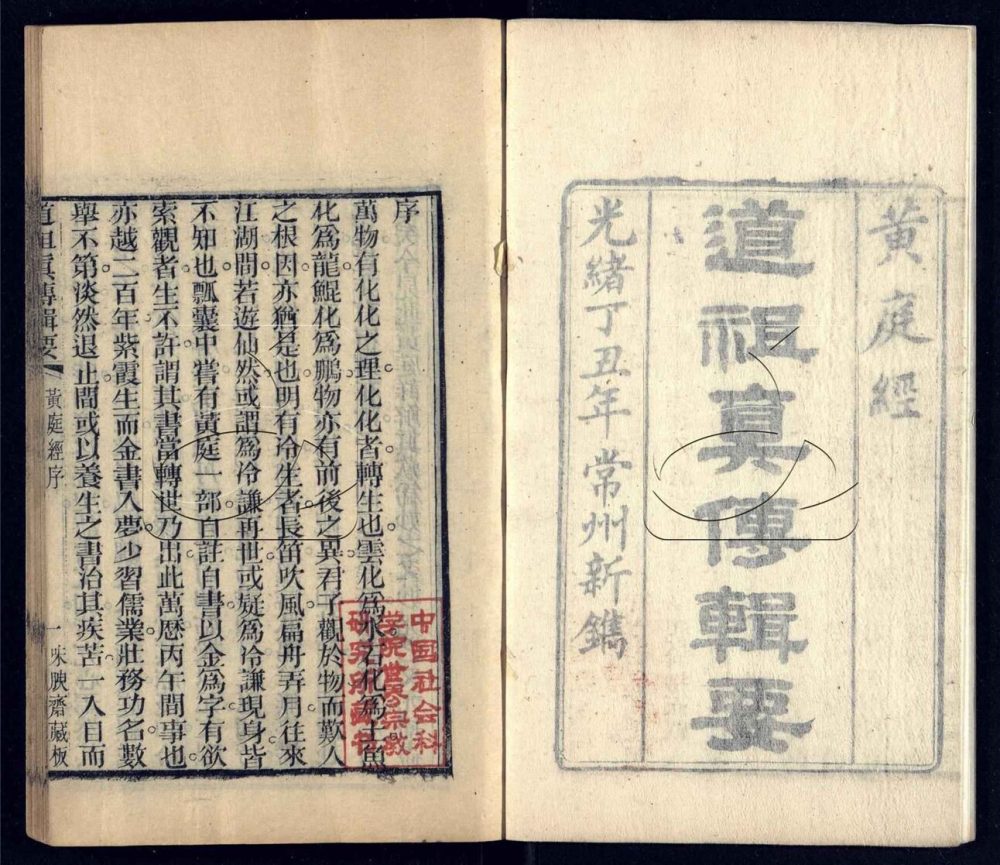 黃庭經
道祖真傳輯要
光緒丁丑年 常州新鐫
序
萬物有化化化之理化化者轉生也雲化為水石化為土魚
化為龍鯤化為鵬物亦有前後之異君子觀於物而歎人
之根因亦猶是也明有冷生者長笛吹風扁舟弄月往來
江湖間若遊仙然或謂為冷謙再世或疑為冷謙現身皆
不知也瓢囊中嘗有黃庭一部自註自書以金為字有欲
索觀者生不許謂其書當轉世乃出此萬歷丙午間事也
亦越二百年紫霞生而金書入夢少習儒業壯務功名數
舉不第淡然退止間或以養生之書治其疾苦一入目而
道祖真傳輯要 黃庭經序 一 味腴齋藏板
中国社会科
学院世界宗教
研究所藏书